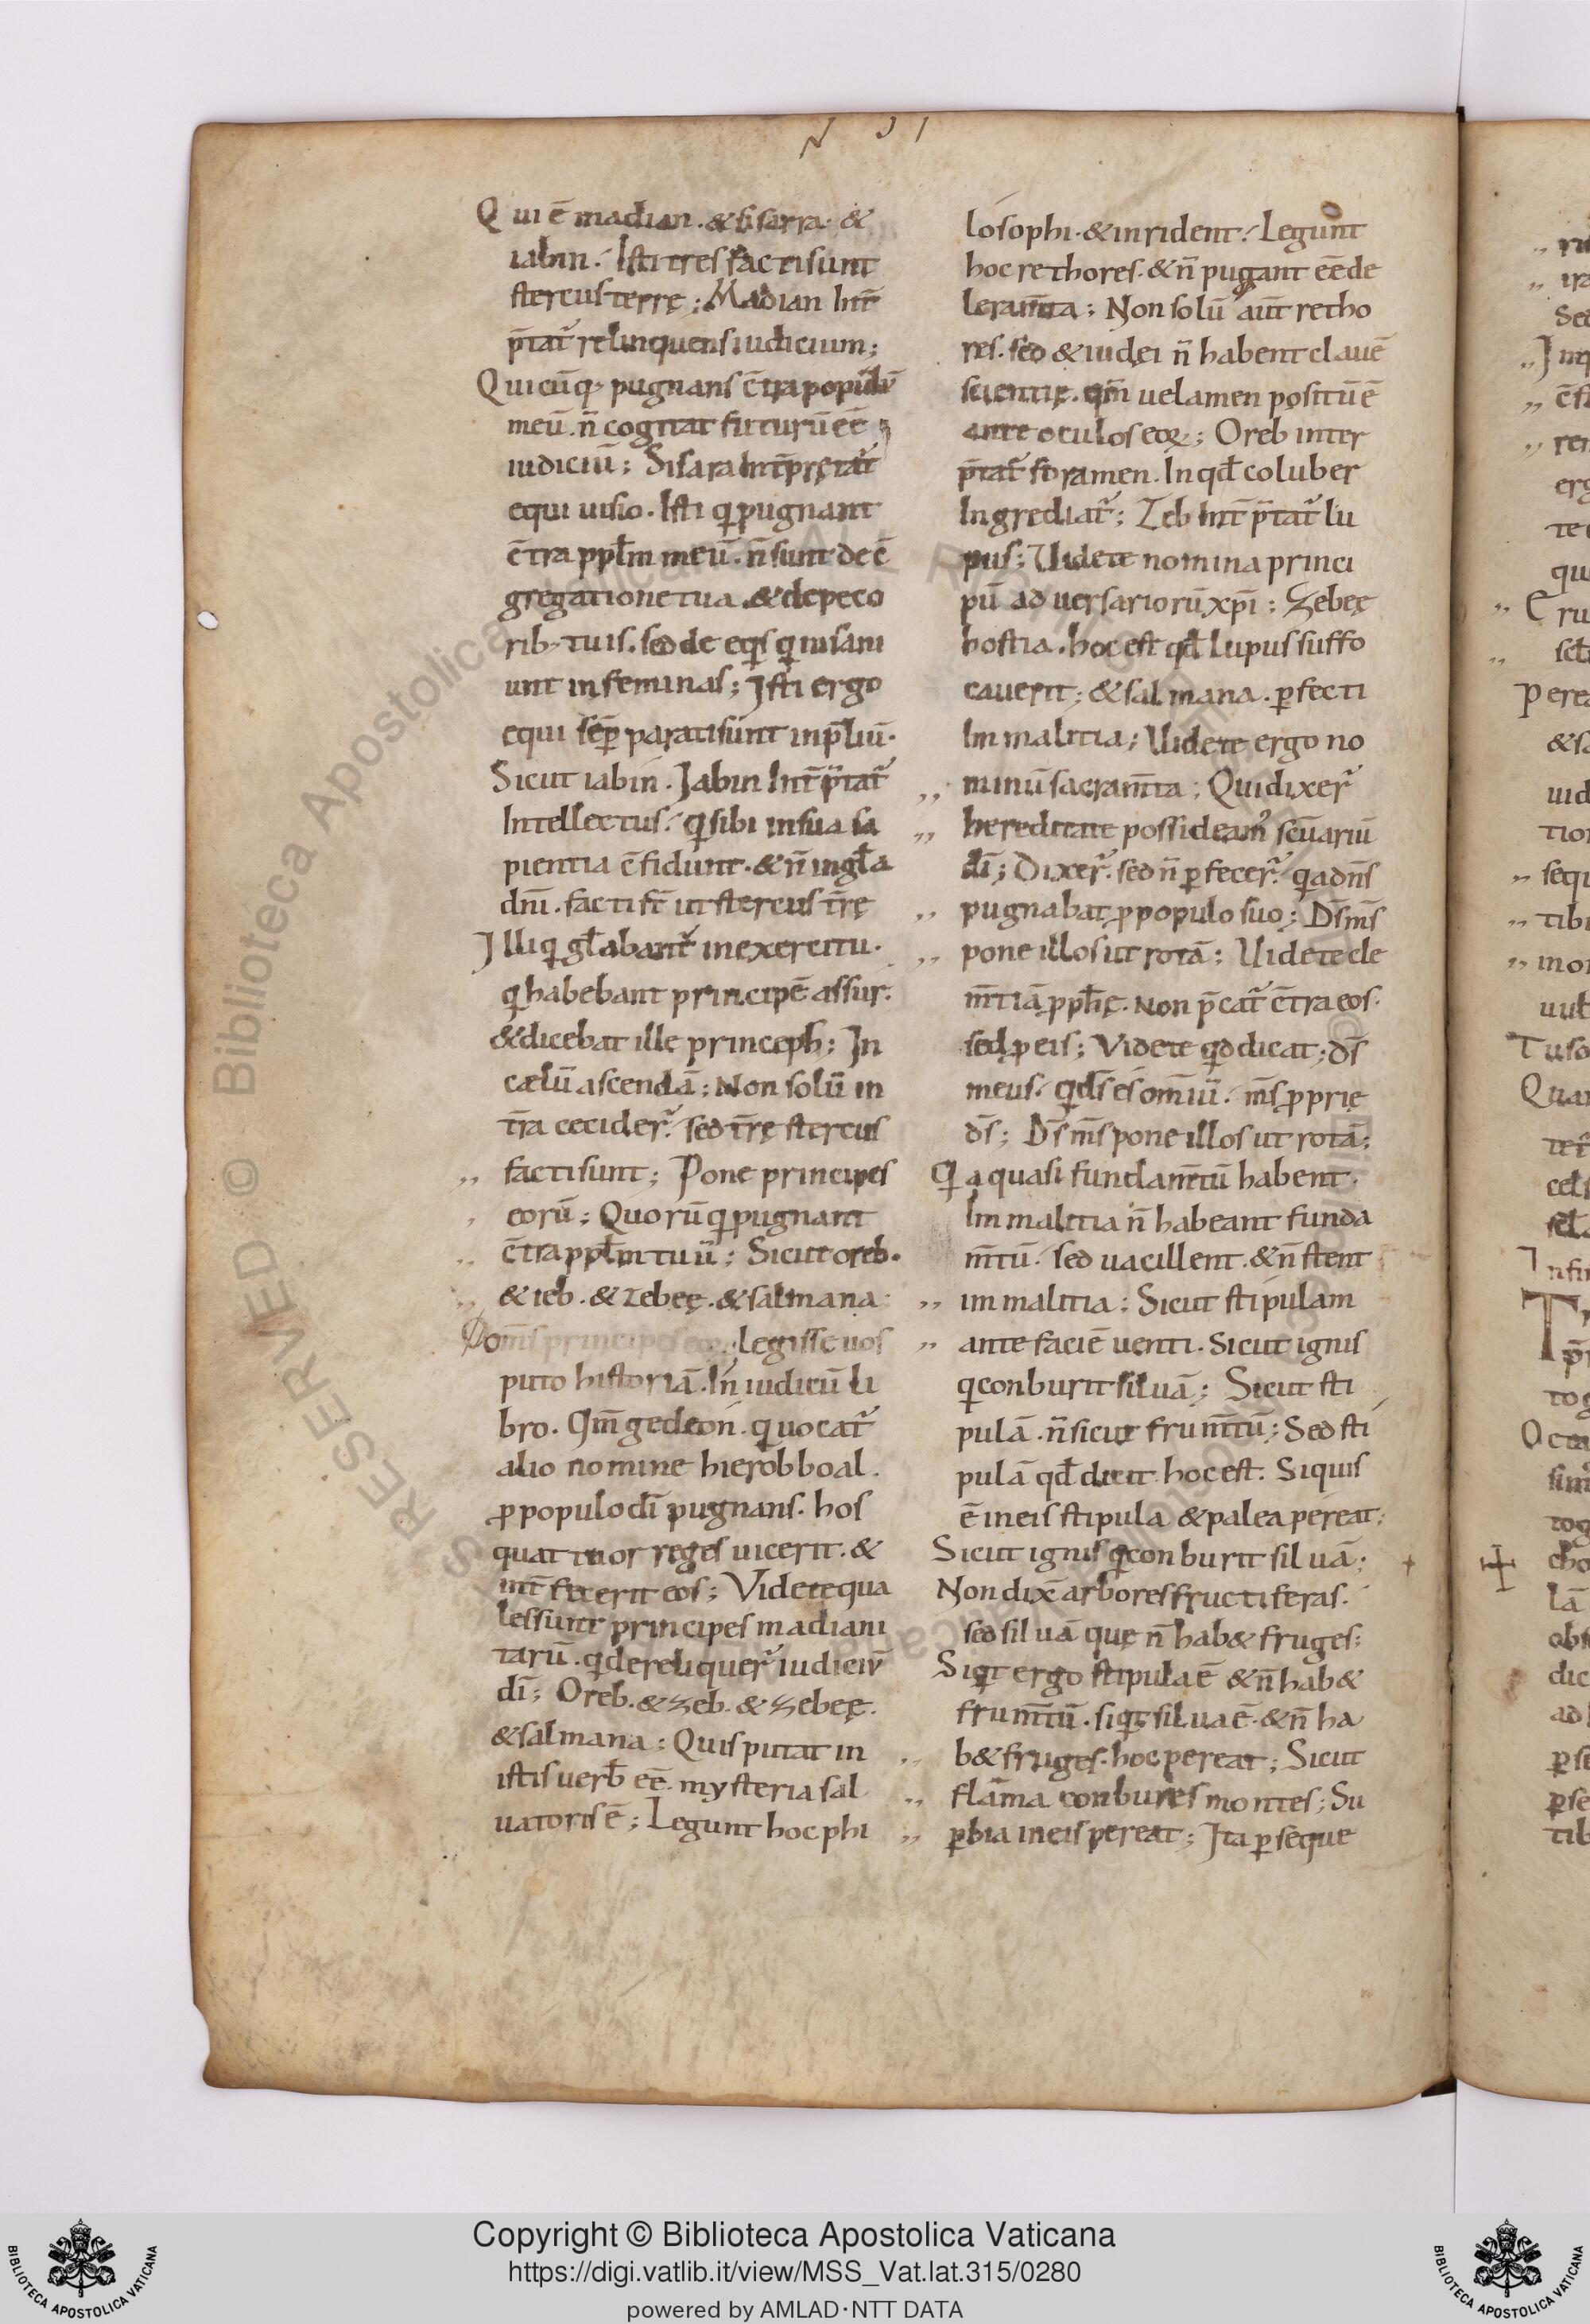 Q ui ē madian . & sisarra . &
iabin . Isti tres facti sunt
stercus terrę ; Madian Int̄
p̄tat᷒ relinquens iudicium ;
Quicūq; pugnans c̄tra populū
meū . n̄ cogitat futurū eē
iudiciū ; Sisara Int̄pretat᷒
equi uisio . Isti qi pugnant
c̄tra pplm̄ meū . n̄ sunt de c̄
gregatione tua . & de peco
rib; tuis . sed de eqis qi insani
unt in feminas ; Isti ergo
equi sēp parati sunt in p̄liū .
Sicut iabin . Jabin Int̄p̄tat᷒
Intellectus . qi sibi in sua sa
pientia c̄fidunt . & n̄ in gl̄a
dn̄i . facti st̄ ut stercus t̄rę
Illi qi gl̄abant᷒ in exercitu .
qi habebant principē assur .
& dicebat ille princeps ; In
cælū ascendā ; Non solū in
t̄ra cecider᷒ . sed t̄rę stercus
,, facti sunt ; Pone principes
, eorū ; Quorū qi pugnant
,, c̄tra pplm̄ tuū ; Sicut oreb .
,, & ieb . & zebeę . & salmana
Pom̄s principes eoꝝ . Legisse uos
puto historiā . In iudicū li
bro . Qm̄ gedeon . qi uocat᷒
alio nomine hierobboal .
ꝓ populo dī pugnans . hos
quattuor reges uicerit . &
int̄fecerit eos ; Videte qua
les sunt principes madiani
tarū . qi dereliquer᷒ iudiciū
dī ; Oreb . & zeb . & zebeę .
& salmana ; Quis putat in
istis uerb̄ eē . mysteria sal
uatoris ē ; Legunt hoc phi
losophi . & inrident . Legunt
hoc rethores . & n̄ pugant eē de
leram̄ta ; Non solū aut̄ retho
res . sed & iudei n̄ habent clauē
scientię . qm̄ uelamen positū ē
ante oculos eoꝝ ; Oreb inter
p̄tat᷒ foramen . In qd̄ coluber
Ingrediat᷒ ; Zeb Int̄p̄tat᷒ lu
pus ; Uidete nomina princi
pū aduersariorū xp̄i ; Zebeę
hostia . hoc est qd̄ lupus suffo
cauerit ; & salmana . ꝑfecti
Im malitia ; Uidete ergo no
,, minū sacram̄ta ; Qui dixer᷒
,, hereditate possideam᷒ sc̄uariū
dī ; Dixer᷒ . sed n̄ ꝑfecer᷒ . qia dn̄s
,, pugnabat ꝓ populo suo ; Ds̄ ms̄
,, pone illos ut rotā ; Uidete cle
m̄tiā ꝓpħę . Non p̄cat᷒ c̄tra eos .
sed ꝓ eis ; Videte qid dicat ; ds̄
meus . qi ds̄ es om̄iū . ms̄ ꝓprię
ds̄ ; Ds̄ ms̄ pone illos ut rotā ;
Qia quasi fundam̄tū habent .
Im malitia n̄ habeant funda
m̄tū . sed uacillent . & n̄ stent
,, im malitia ; Sicut stipulam
,, ante faciē uenti . Sicut ignis
qi conburit siluā ; Sicut sti
pulā . n̄ sicut frum̄tū ; Sed sti
pulā qd̄ dicit . hoc est . Siquis
ē in eis stipula & palea pereat ;
Sicut ignis qi conburit siluā ;
Non dix̄ arbores fructiferas .
sed siluā quę n̄ hab& fruges ;
Siqit ergo stipula ē & n̄ hab&
frum̄tū . siqit silua ē . & n̄ ha
,, b& fruges . hoc pereat ; Sicut
,, flāma conbures montes ; Su
,, ꝑbia in eis pereat ; Ita ꝑseque
Copyright © Biblioteca Apostolica Vaticana
https://digi.vatlib.it/view/MSS_Vat.lat.315/0280
powered by AMLAD·NTT DATA